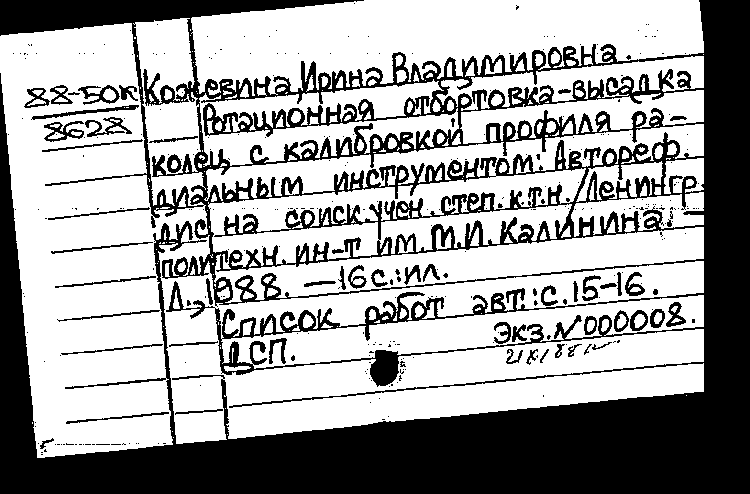 88-50к
8628
Кожевина, Ирина Владимировна.
Ротационная отбортовка-высадка
колец с калибровкой профиля ра-
диальным инструментом: Автореф.
дис. на соиск. учен. степ. к.т.н. / Ленингр.
политехн. ин-т им. М.И. Калинина. —
Л., 1988. — 16 с.: ил.
Список работ авт.: с. 15-16.
ДСП. Экз. N 000008.